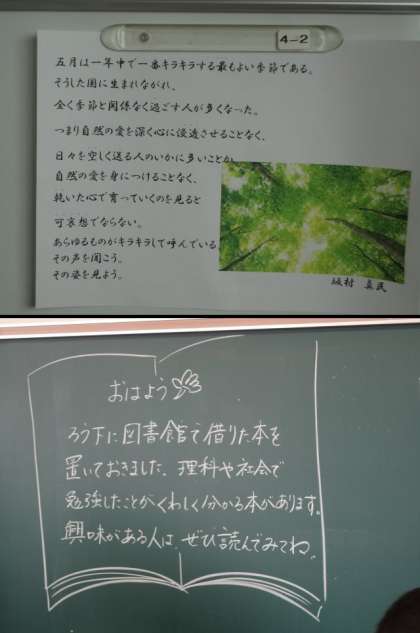 4-2
五月は一年中で一番キラキラする最もよい季節である。
そうした国に生まれながれ、
全く季節と関係なく過ごす人が多くなった。
つまり自然の愛を深く心に浸透させることなく、
日々を空しく送る人のいかに多いことか。
自然の愛を身につけることなく、
乾いた心で育っていくのを見ると
可哀想でならない。
あらゆるものがキラキラして呼んでいる
その声を聞こう。
その姿を見よう。
坂村 真民
おはよう
ろう下に図書館で借りた本を
置いておきました。理科や社会で
勉強したことがくわしく分かる本があります。
興味がある人は、ぜひ読んでみてね。